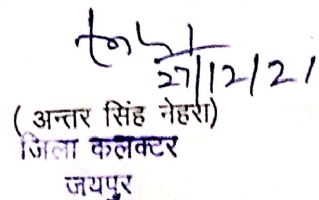 27/12/21
( अन्तर सिंह नेहरा)
जिला कलक्टर
जयपुर